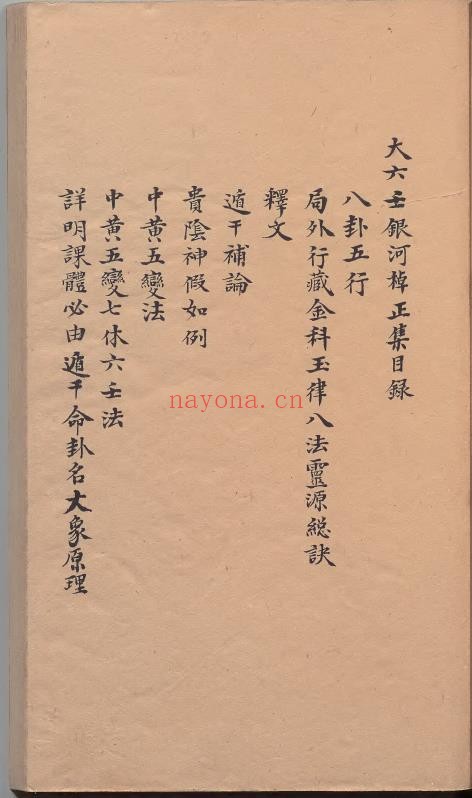 大六壬銀河棹正集目録
八卦五行
局外行藏金科玉律八法靈源総訣
釋文
遁干補論
貴陰神假如例
中黄五變法
中黄五變七休六壬法
詳明課體必由遁干命卦名大象原理
nayona.cn